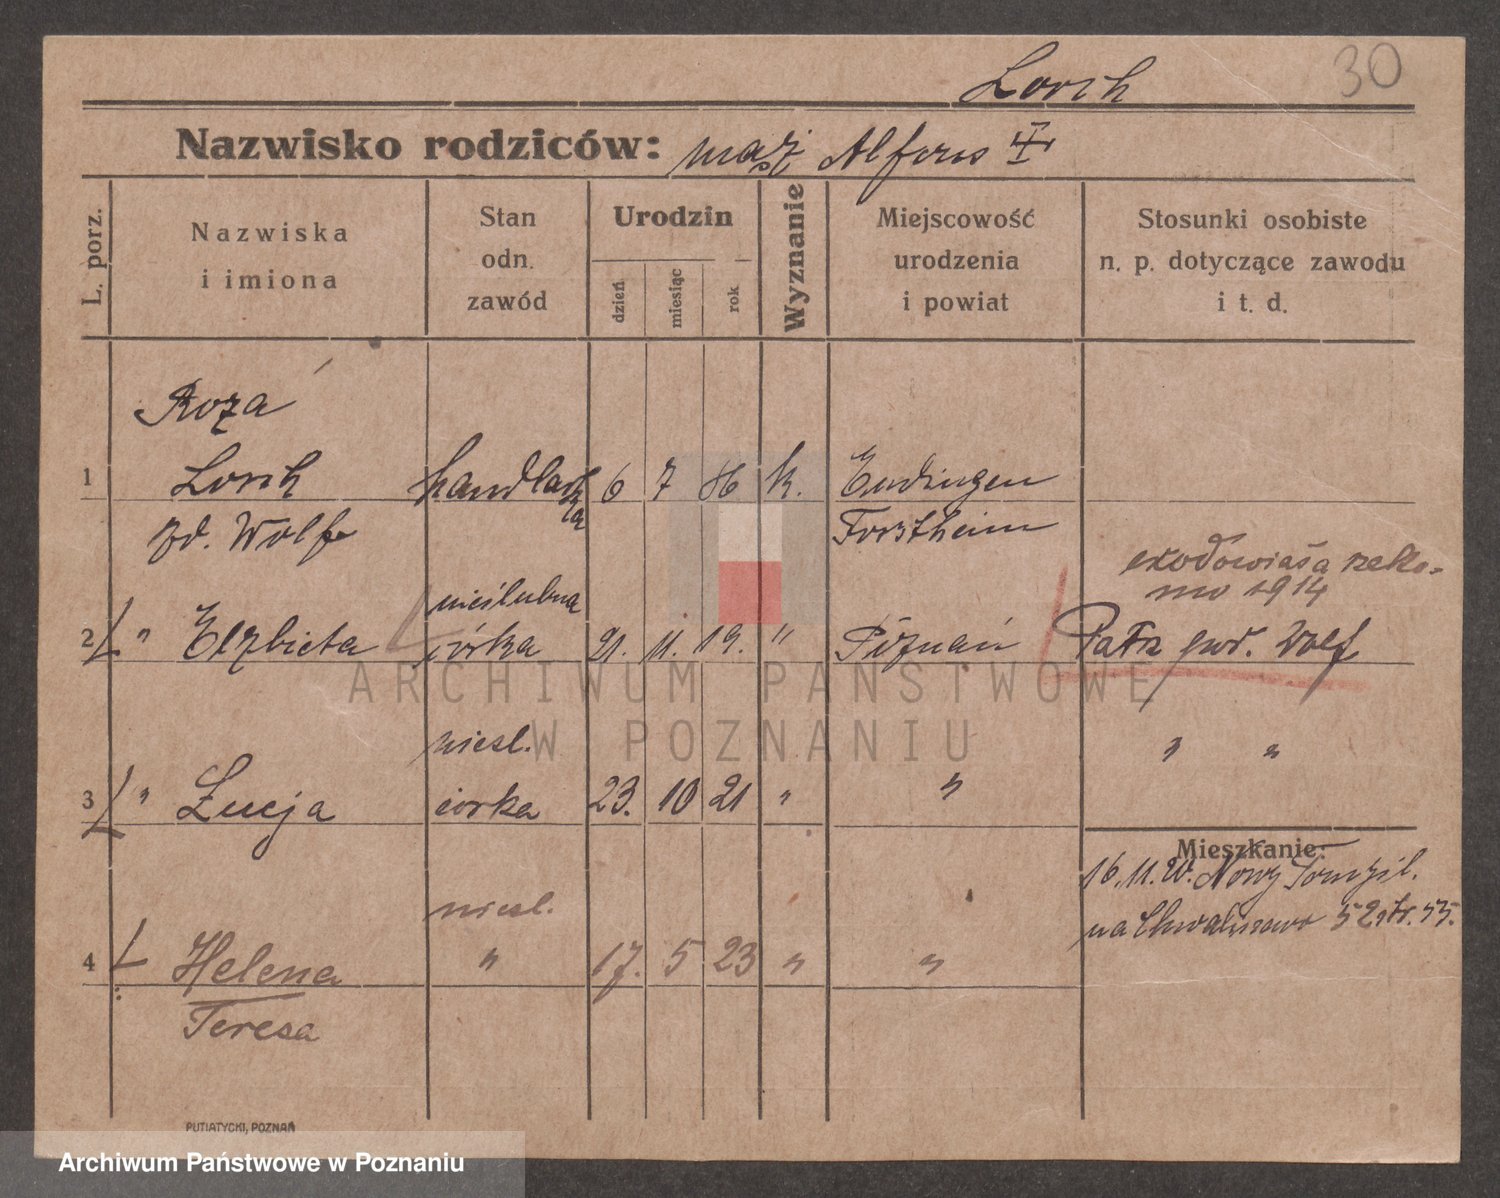 Lorch 30
Nazwisko rodziców: mąż Alfons
L. porz.
Nazwiska
i imiona
Stan
odn.
zawód
Urodzin
dzień
miesiąc
rok
Wyznanie
Miejscowość
urodzenia
i powiat
Stosunki osobiste
n. p. dotyczące zawodu
i t. d.
Roza
1 Lorch handlarka 6 7 86 k. Endingen
Wolf Forstheim
1914
nieślubna
2 " Elzbieta córka 21. 11. 19. " Poznań Patrz Wolf
niesl.
3 " Łucja córka 23. 10 21 " " " "
Mieszkanie:
16. 11. 20. Nowy Tomyśl.
niesl.
na Chwaliszewo
4 Helena " 17. 5 23 " "
Teresa
PUTIATYCKI, POZNAŃ
ARCHIWUM PAŃSTWOWE
W POZNANIU
Archiwum Państwowe w Poznaniu